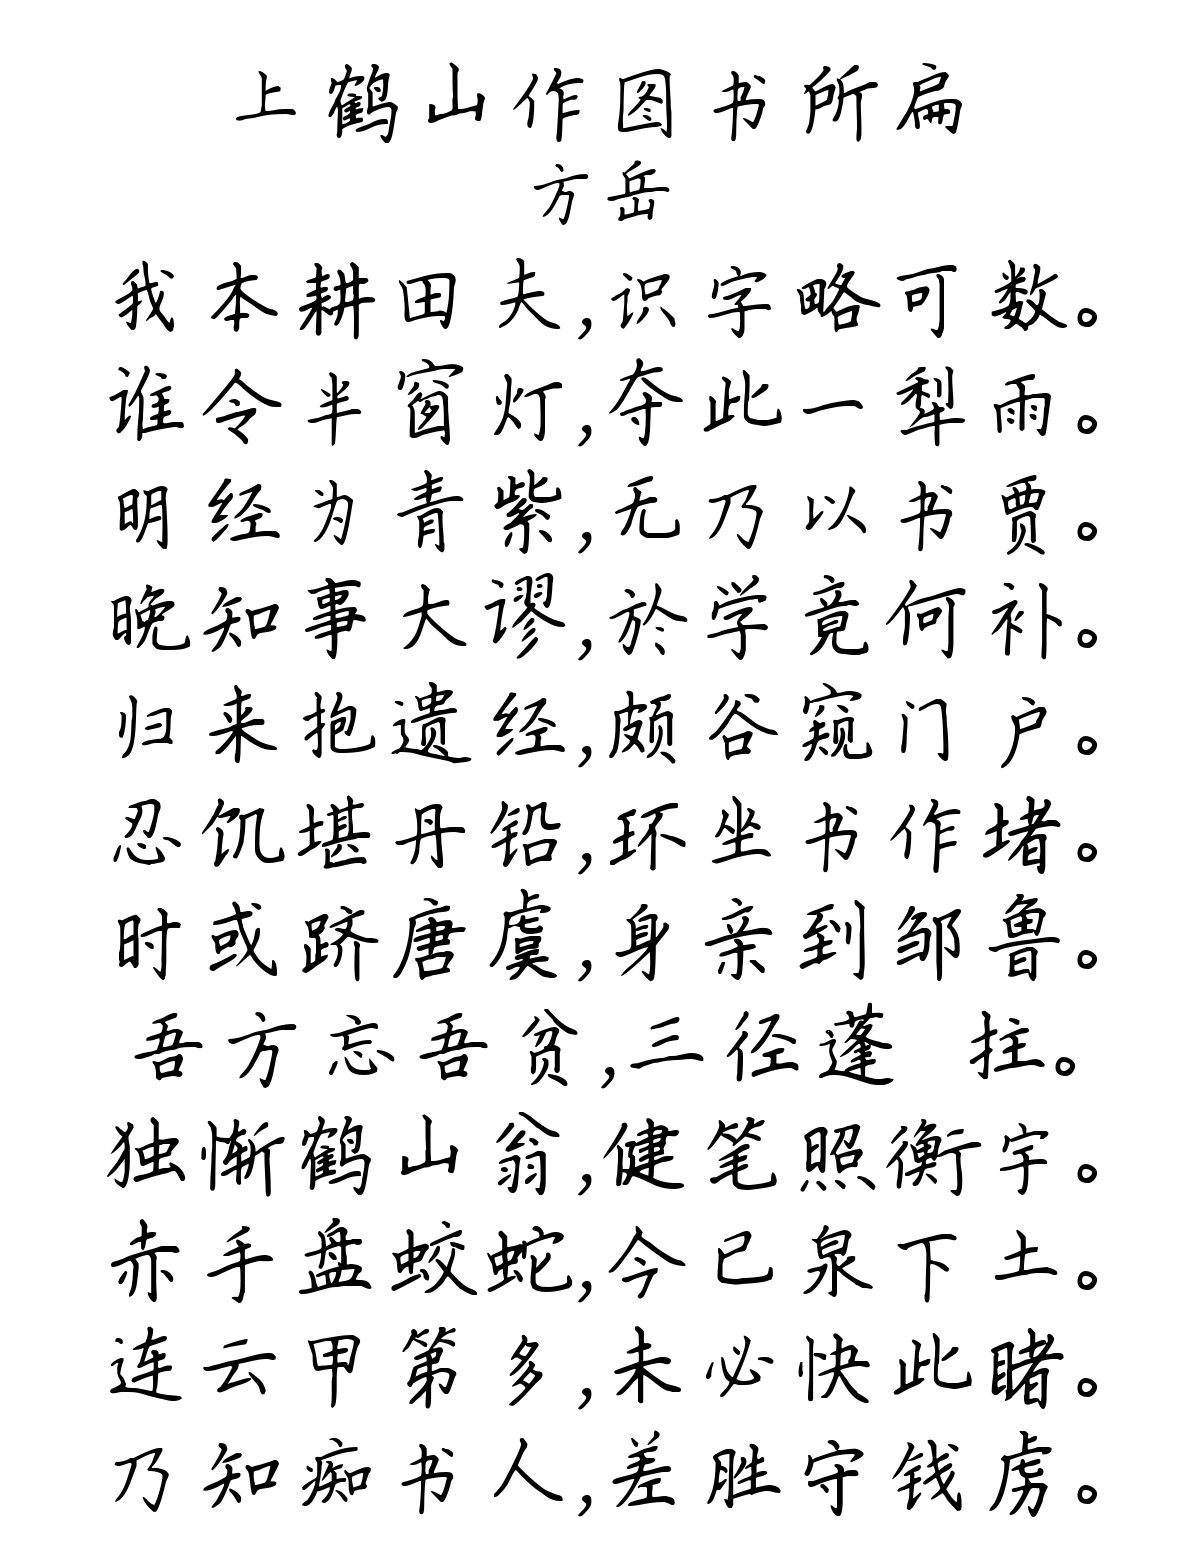 上鹤山作图书所扁
方岳
我本耕田夫,识字略可数。
谁令半窗灯,夺此一犁雨。
明经为青紫,无乃以书贾。
晚知事大谬,於学竟何补。
归来抱遗经,颇谷窥门户。
忍饥堪丹铅,环坐书作堵。
时或跻唐虞,身亲到邹鲁。
吾方忘吾贫,三径蓬 拄。
独惭鹤山翁,健笔照衡宇。
赤手盘蛟蛇,今已泉下土。
连云甲第多,未必快此睹。
乃知痴书人,差胜守钱虏。